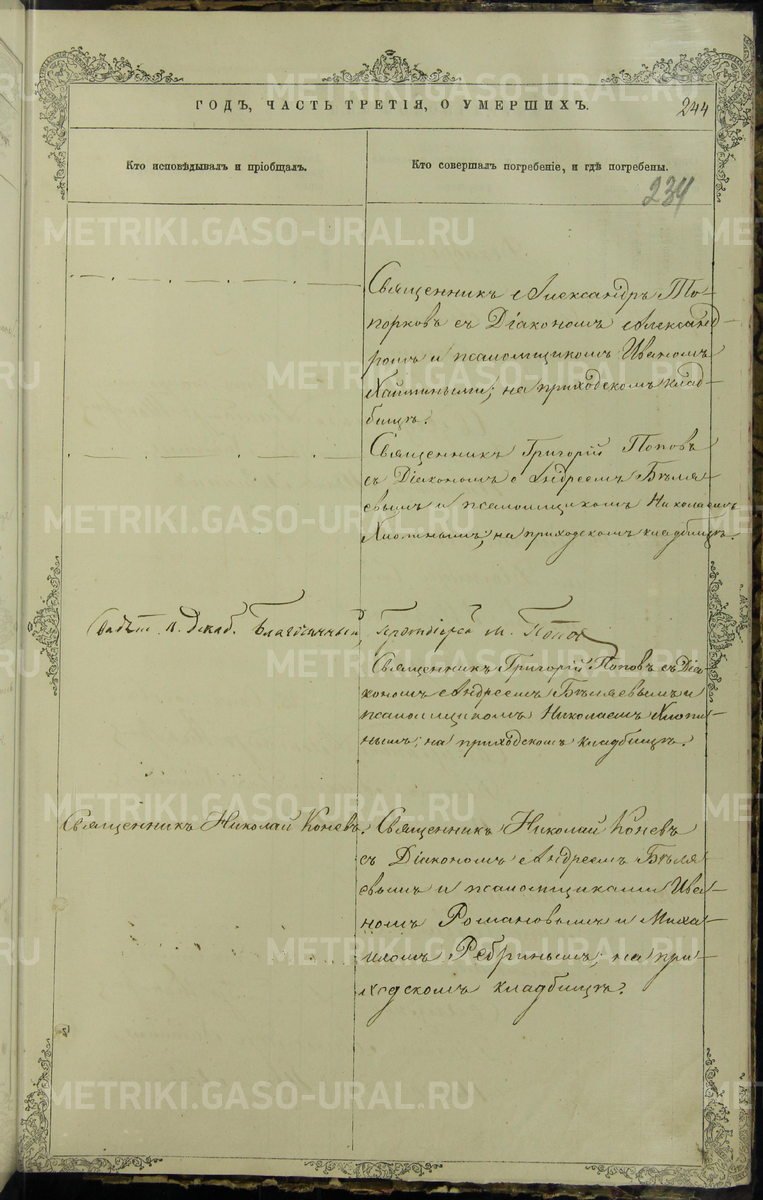 ГОДЪ, ЧАСТЬ ТРЕТІЯ, О УМЕРШИХЪ.
244
Кто исповѣдывалъ и пріобщалъ.
Кто совершалъ погребеніе, и гдѣ погребены.
234
Священникъ Александръ То-
порковъ съ Діакономъ Александ-
ромъ и псаломщикомъ Иваномъ
на приходскомъ клад-
бищѣ.
Священникъ Григорій Поповъ
съ Діакономъ Андреемъ Бѣля-
евымъ и псаломщикомъ Николаемъ
Хлопинымъ, на приходскомъ кладбищѣ.
Благочинный, Протоіерей М. Попов
Священникъ Григорій Поповъ съ Діа-
кономъ Андреемъ Бѣляевымъ и
псаломщикомъ Николаемъ Хлопи-
нымъ; на приходскомъ кладбищѣ.
Священникъ Николай Коневъ.
Священникъ Николай Коневъ
съ Діакономъ Андреемъ Бѣля-
евымъ и псаломщиками Ива-
номъ Романовымъ и Миха-
иломъ Ребринымъ; на при-
ходскомъ кладбищѣ.
METRIKI.GASO-URAL.RU